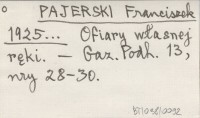 PAJERSKI Franciszek
1925... Ofiary własnej
ręki. — Gaz. Podh. 13,
nry 28-30.